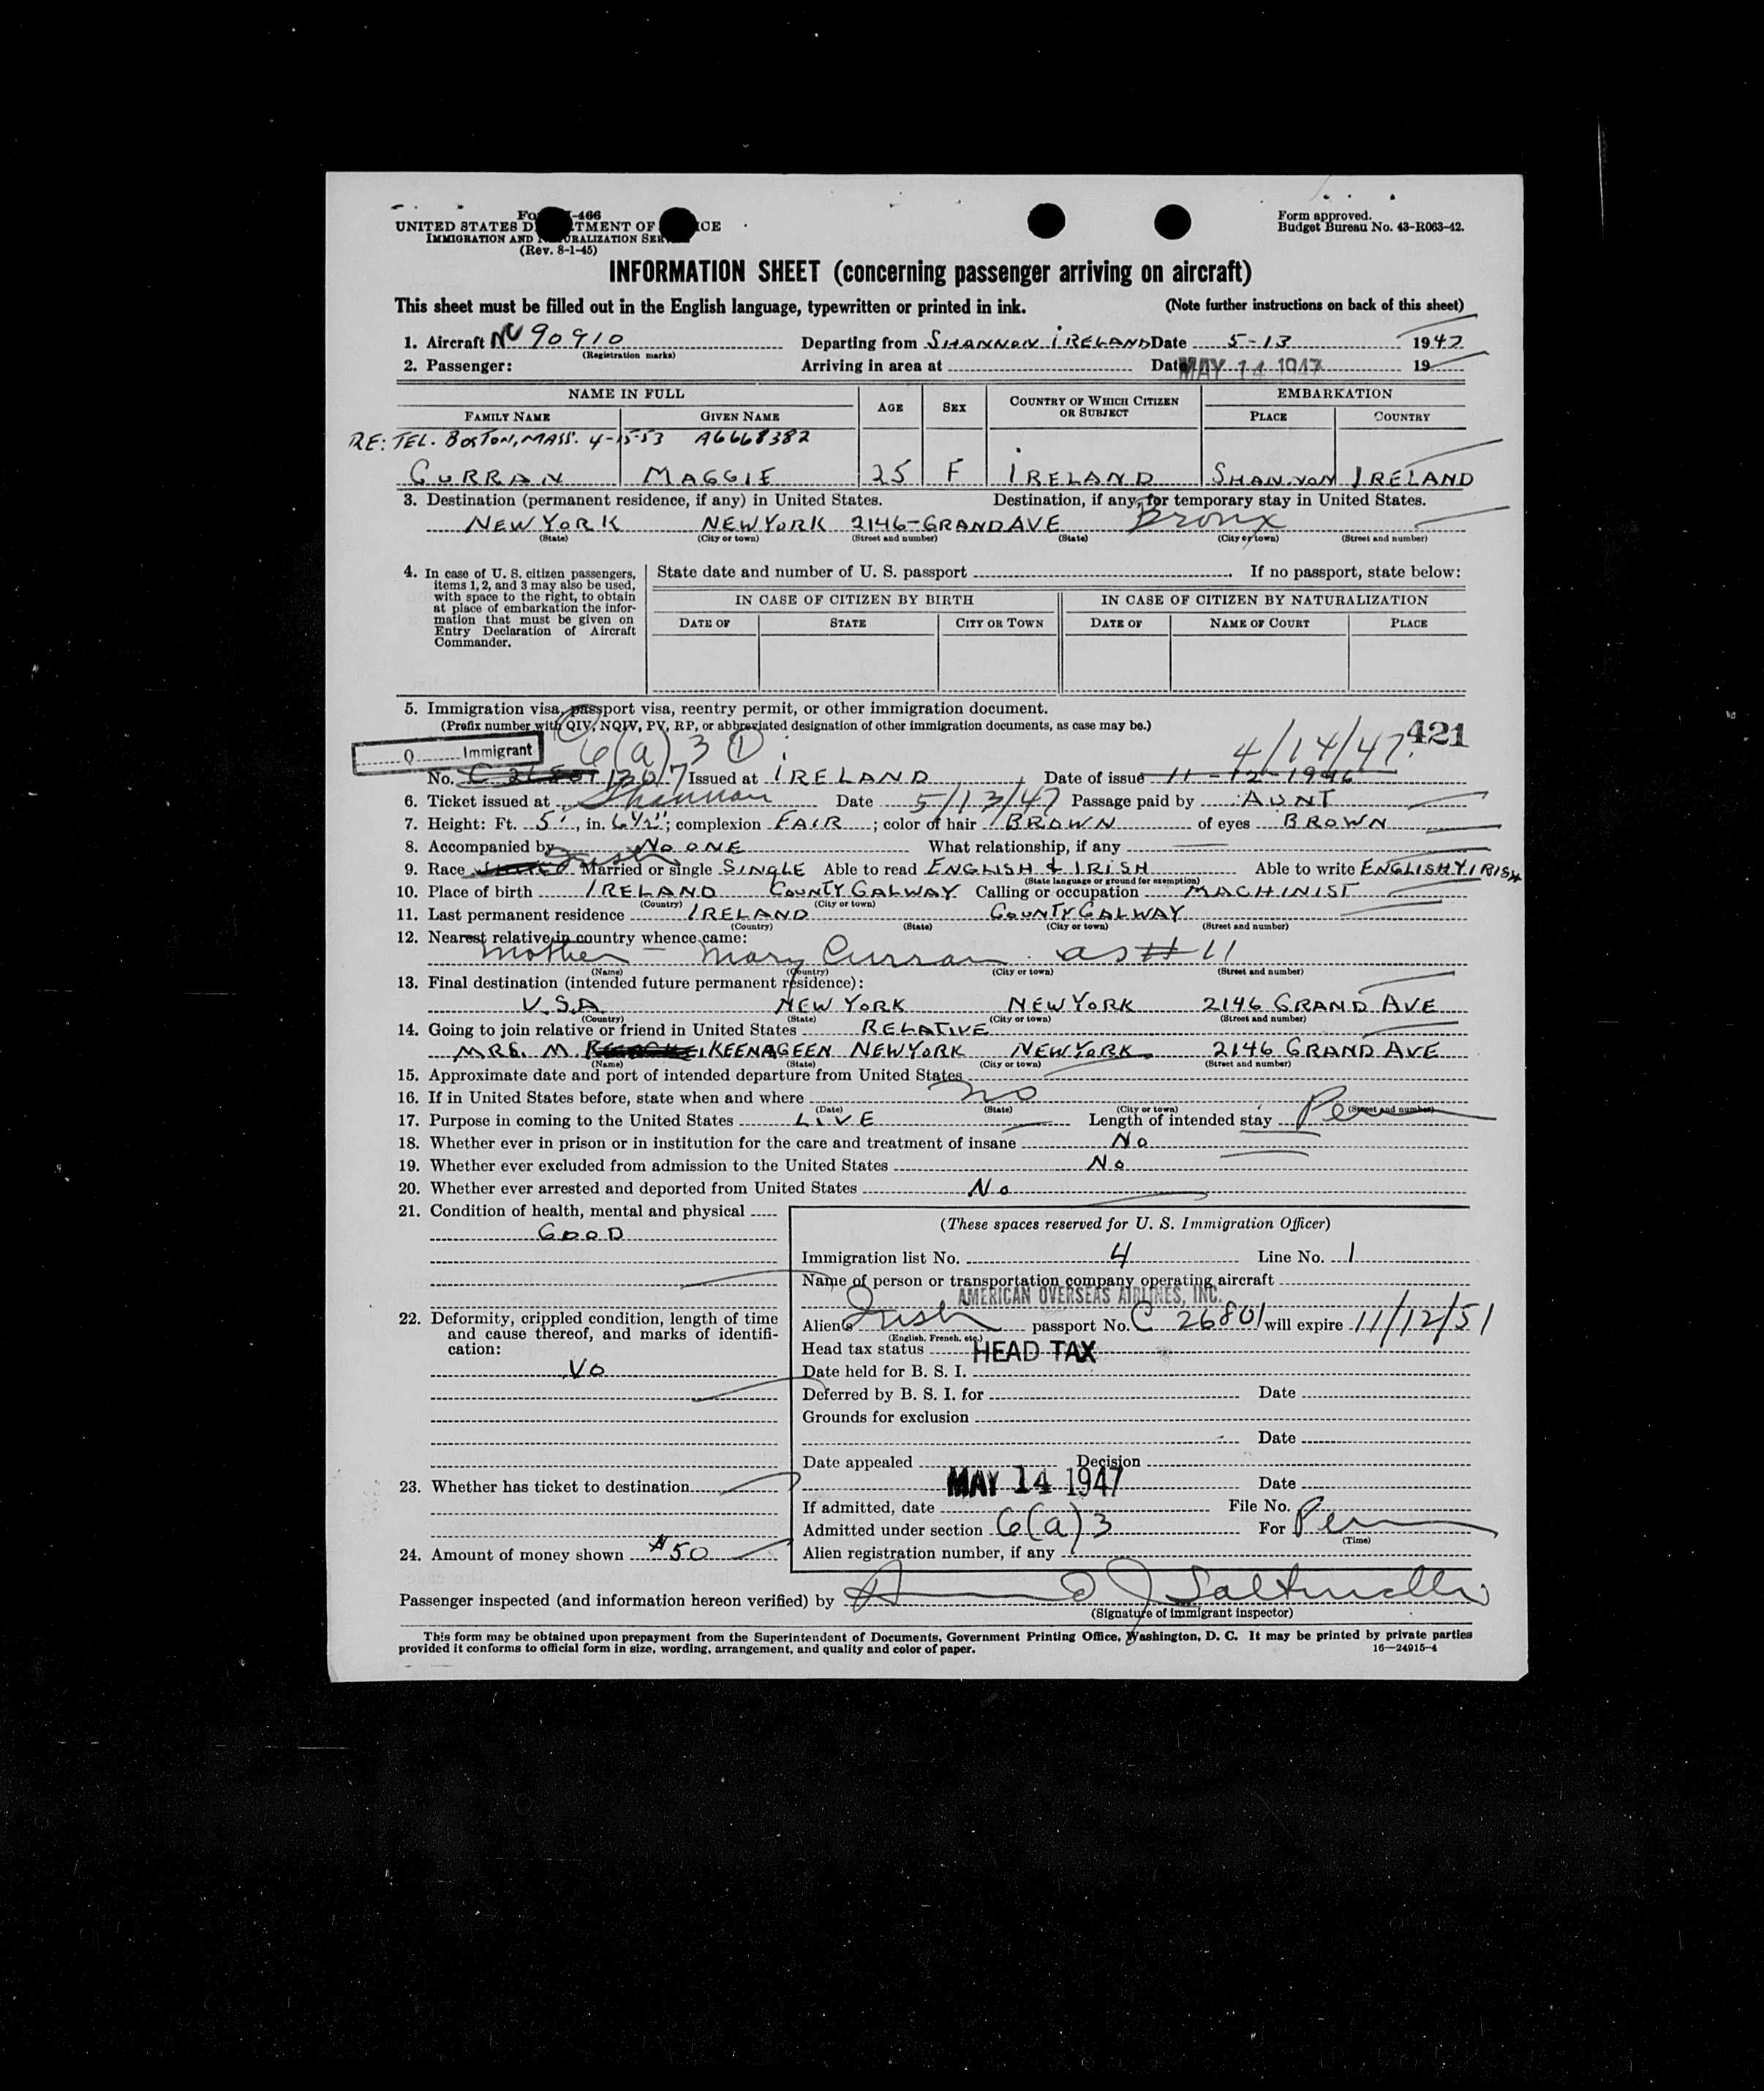 Form I-466
UNITED STATES DEPARTMENT OF JUSTICE
IMMIGRATION AND NATURALIZATION SERVICE
(Rev. 8-1-45)
Form approved.
Budget Bureau No. 43-R063-42.
INFORMATION SHEET (concerning passenger arriving on aircraft)
This sheet must be filled out in the English language, typewritten or printed in ink. (Note further instructions on back of this sheet)
1. Aircraft NC 90910 Departing from SHANNON IRELAND Date 5-13 1947
(Registration marks)
2. Passenger: Arriving in area at Date MAY 14 1947 19
NAME IN FULL AGE SEX COUNTRY OF WHICH CITIZEN OR SUBJECT EMBARKATION
FAMILY NAME GIVEN NAME PLACE COUNTRY
RE: TEL. BOSTON, MASS. 4-15-53 A6668382
CURRAN MAGGIE 25 F IRELAND SHANNON IRELAND
3. Destination (permanent residence, if any) in United States. Destination, if any, for temporary stay in United States.
NEW YORK NEW YORK 2146-GRAND AVE Bronx
(State) (City or town) (Street and number) (State) (City or town) (Street and number)
4. In case of U. S. citizen passengers, items 1, 2, and 3 may also be used, with space to the right, to obtain at place of embarkation the information that must be given on Entry Declaration of Aircraft Commander.
State date and number of U. S. passport If no passport, state below:
IN CASE OF CITIZEN BY BIRTH IN CASE OF CITIZEN BY NATURALIZATION
DATE OF STATE CITY OR TOWN DATE OF NAME OF COURT PLACE
5. Immigration visa, passport visa, reentry permit, or other immigration document.
(Prefix number with QIV, NQIV, PV, RP, or abbreviated designation of other immigration documents, as case may be.)
421
Q Immigrant 6(a)3 1 4/14/47
No. 1207 Issued at IRELAND Date of issue 11-12-1946
6. Ticket issued at Shannon Date 5/13/47 Passage paid by AUNT
7. Height: Ft. 5', in. 6 1/2"; complexion FAIR; color of hair BROWN of eyes BROWN
8. Accompanied by NO ONE What relationship, if any
9. Race Irish Married or single SINGLE Able to read ENGLISH & IRISH Able to write ENGLISH Y IRISH
(State language or ground for exemption)
10. Place of birth IRELAND COUNTY GALWAY Calling or occupation MACHINIST
(Country) (City or town)
11. Last permanent residence IRELAND COUNTY GALWAY
(Country) (State) (City or town) (Street and number)
12. Nearest relative in country whence came:
Mother - Mary Curran as # 11
(Name) (Country) (City or town) (Street and number)
13. Final destination (intended future permanent residence):
U.S.A. NEW YORK NEW YORK 2146 GRAND AVE
(Country) (State) (City or town) (Street and number)
14. Going to join relative or friend in United States RELATIVE
MRS. M. KEENAGEEN NEW YORK NEW YORK 2146 GRAND AVE
(Name) (State) (City or town) (Street and number)
15. Approximate date and port of intended departure from United States
16. If in United States before, state when and where no
(Date) (State) (City or town) (Street and number)
17. Purpose in coming to the United States LIVE Length of intended stay Per
18. Whether ever in prison or in institution for the care and treatment of insane No
19. Whether ever excluded from admission to the United States No
20. Whether ever arrested and deported from United States No
21. Condition of health, mental and physical
GOOD
(These spaces reserved for U. S. Immigration Officer)
Immigration list No. 4 Line No. 1
Name of person or transportation company operating aircraft
AMERICAN OVERSEAS AIRLINES, INC.
22. Deformity, crippled condition, length of time and cause thereof, and marks of identification:
VO
Aliens Irish passport No. C 26801 will expire 11/12/51
(English, French, etc.)
Head tax status HEAD TAX
Date held for B. S. I.
Deferred by B. S. I. for Date
Grounds for exclusion
Date
Date appealed Decision
23. Whether has ticket to destination
MAY 14 1947 Date
If admitted, date File No.
Admitted under section 6(a)3 For Per
(Time)
24. Amount of money shown $50
Alien registration number, if any
Passenger inspected (and information hereon verified) by
(Signature of immigrant inspector)
This form may be obtained upon prepayment from the Superintendent of Documents, Government Printing Office, Washington, D. C. It may be printed by private parties
provided it conforms to official form in size, wording, arrangement, and quality and color of paper. 16—24915-4